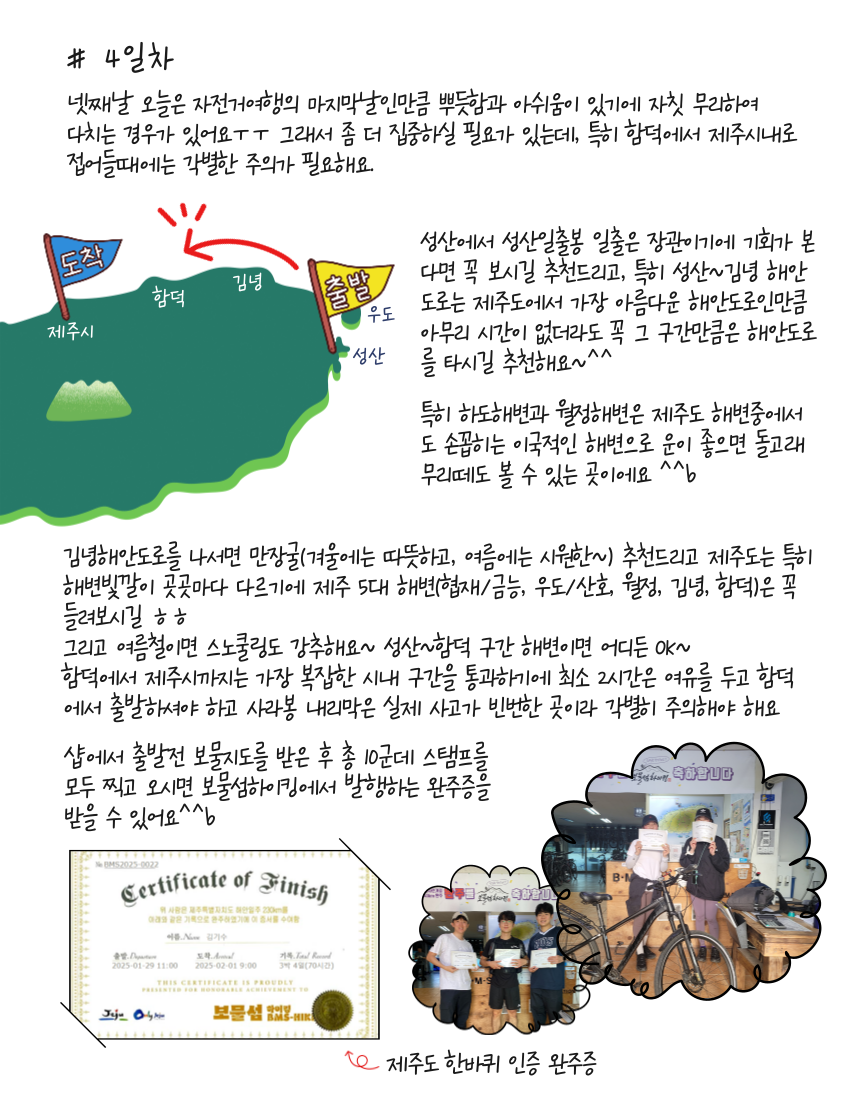 # 4일차
넷째날 오늘은 자전거여행의 마지막날인만큼 뿌듯함과 아쉬움이 있기에 자칫 무리하여
다치는 경우가 있어요ㅜㅜ 그래서 좀 더 집중하실 필요가 있는데, 특히 함덕에서 제주시내로
접어들때에는 각별한 주의가 필요해요.
도착
출발
김녕
함덕
우도
제주시
성산
성산에서 성산일출봉 일출은 장관이기에 기회가 본
다면 꼭 보시길 추천드리고, 특히 성산~김녕 해안
도로는 제주도에서 가장 아름다운 해안도로인만큼
아무리 시간이 없더라도 꼭 그 구간만큼은 해안도로
를 타시길 추천해요~^^
특히 하도해변과 월정해변은 제주도 해변중에서
도 손꼽히는 이국적인 해변으로 운이 좋으면 돌고래
무리떼도 볼 수 있는 곳이에요 ^^b
김녕해안도로를 나서면 만장굴(겨울에는 따뜻하고, 여름에는 시원한~) 추천드리고 제주도는 특히
해변빛깔이 곳곳마다 다르기에 제주 5대 해변(협재/금능, 우도/산호, 월정, 김녕, 함덕)은 꼭
들려보시길 ㅎㅎ
그리고 여름철이면 스노쿨링도 강추해요~ 성산~함덕 구간 해변이면 어디든 OK~
함덕에서 제주시까지는 가장 복잡한 시내 구간을 통과하기에 최소 2시간은 여유를 두고 함덕
에서 출발하셔야 하고 사라봉 내리막은 실제 사고가 빈번한 곳이라 각별히 주의해야 해요
샵에서 출발전 보물지도를 받은 후 총 10군데 스탬프를
모두 찍고 오시면 보물섬하이킹에서 발행하는 완주증을
받을 수 있어요^^b
№ BMS2025-0022
Certificate of Finish
위 사람은 제주특별자치도 해안일주 230km를
아래와 같은 기록으로 완주하였기에 이 증서를 수여함
이름.Name 김기수
출발.Departure 도착.Arrival 기록.Total Record
2025-01-29 11:00 2025-02-01 9:00 3박 4일(70시간)
THIS CERTIFICATE IS PROUDLY
PRESENTED FOR HONORABLE ACHIEVEMENT TO
Jeju Only Jeju 보물섬 하이킹 BMS-HIKI
축하합니다
보물섬하이킹 축하합니다
제주도 한바퀴 인증 완주증